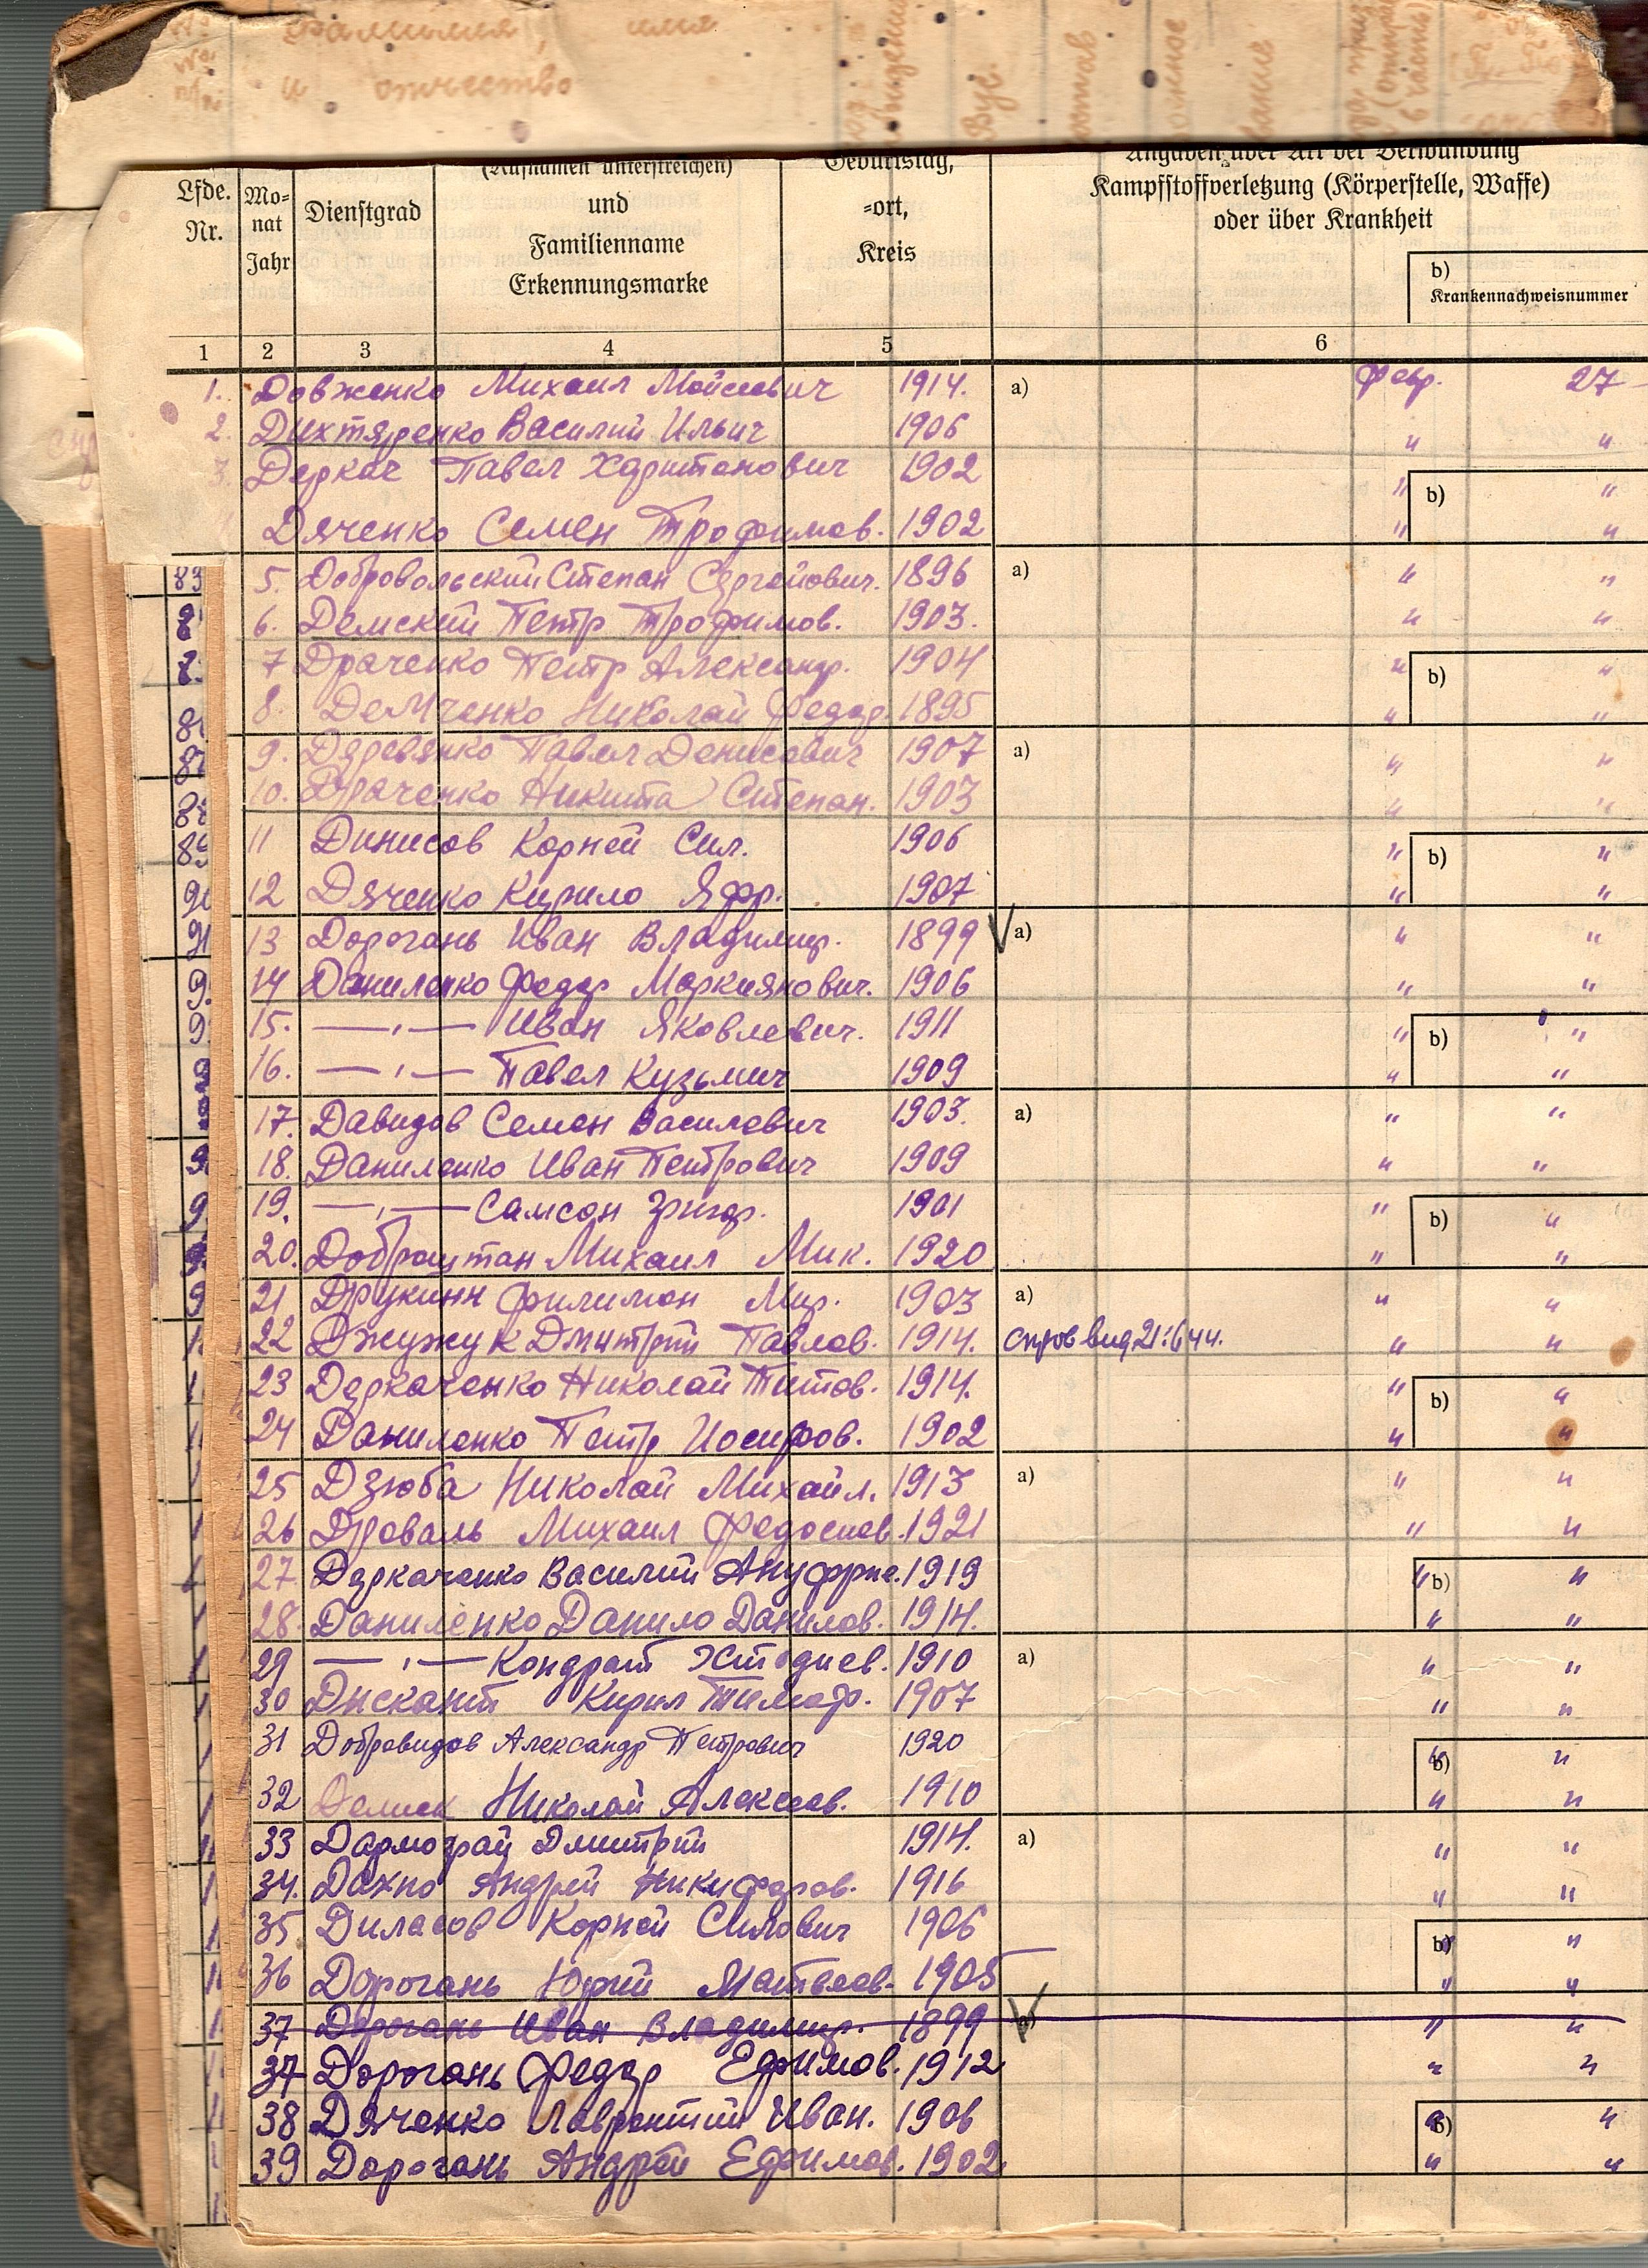 фамилия, имя
и отчество
(Rufnamen unterstreichen)
Geburtstag,
Angaben über Art der Verwundung
Lfde.
Nr.
Mo=
nat
Jahr
Dienstgrad
und
Familienname
Erkennungsmarke
=ort,
Kreis
Kampfstoffverletzung (Körperstelle, Waffe)
oder über Krankheit
b)
Krankennachweisnummer
1 2 3 4 5 6
1. Довженко Михаил Мойсеевич 1914. a) Февр. 27
2. Дихтяренко Василий Ильич 1906 " "
3. Деркач Павел Харитонович 1902 " b) "
Дяченко Семен Трофимов. 1902 " "
5. Добровольский Степан Сергейович. 1896 a) " "
6. Демский Петр Трофимов. 1903. " "
7 Драченко Петр Александр. 1904 " b) "
8. Демченко Николай Федор. 1895 " "
9. Деревянко Павел Денисович 1907 a) " "
10. Драченко Никита Степан. 1903 " "
11 Динисов Корней Сил. 1906 " b) "
12 Дяченко Кирило 1907 " "
13 Дорогань Иван Владимир. 1899 a) " "
14 Даниленко Федор Маркиянович. 1906 " "
15. —„— Иван Яковлевич. 1911 " b) "
16. —„— Павел Кузьмич 1909 " "
17. Давидов Семен Василевич 1903. a) " "
18. Даниленко Иван Петрович 1909 " "
19. —„— Самсон Григор. 1901 " b) "
20. Доброштан Михаил Мик. 1920 " "
21 Друкинн Филимон Мир. 1903 a) " "
22 Джужук Дмитрий Павлов. 1914. " "
23 Деркаченко Николай Титов. 1914. " b) "
24 Даниленко Петр Иосифов. 1902 " "
25 Дзюба Николай Михайл. 1913 a) " "
26 Дроваль Михаил Федосиев. 1921 " "
27. Деркаченко Василий Ануфрие. 1919 " b) "
28. Даниленко Данило Данилов. 1914. " "
29 —„— Кондрат 1910 a) " "
30 Дискант Кирил Тимоф. 1907 " "
31 Добровидов Александр Петрович 1920 " b) "
32 Николай Алексеев. 1910 " "
33 Дармограй Дмитрий 1914. a) " "
34. Дахно Андрей Никифоров. 1916 " "
35. Диласов Корней Силович 1906 b) "
36 Дорогань Юрий Матвеев. 1905 " "
37 Дорогань Иван Владимир. 1899 a) " "
37 Дорогань Федор Ефимов. 1912 " "
38 Дяченко Лаврентий Иван. 1906 b) "
39 Дорогань Андрей Ефимов. 1902. " "